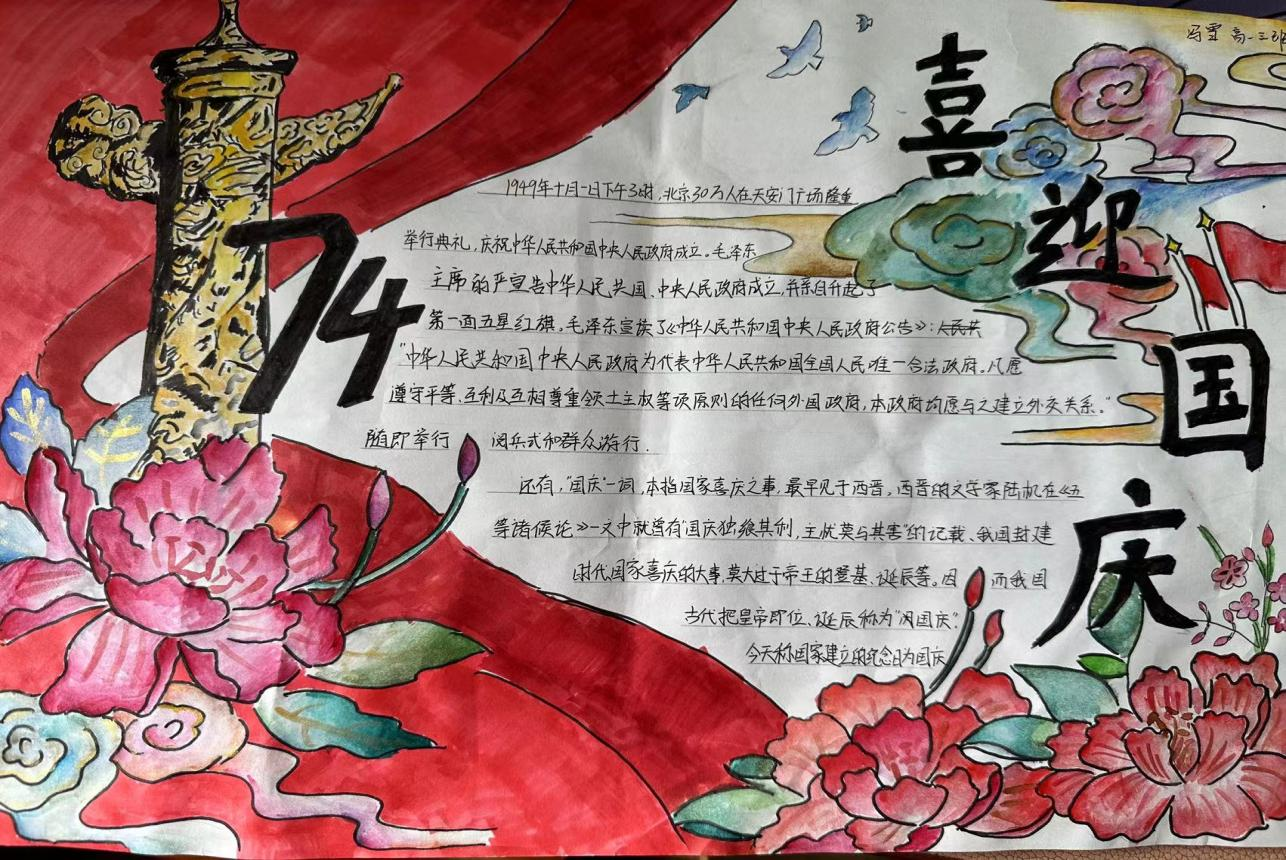 冯雪 高一三班
喜迎国庆
74
1949年十月一日下午3时,北京30万人在天安门广场隆重
举行典礼,庆祝中华人民共和国中央人民政府成立。毛泽东
主席的严宣告中华人民共国、中央人民政府成立,并亲自升起了
第一面五星红旗。毛泽东宣读了《中华人民共和国中央人民政府公告》:人民共
"中华人民共和国中央人民政府为代表中华人民共和国全国人民唯一合法政府。凡愿
遵守平等、互利及互相尊重领土主权等项原则的任何外国政府,本政府均愿与之建立外交关系。"
随即举行 阅兵式和群众游行.
还有,"国庆"一词,本指国家喜庆之事,最早见于西晋。西晋的文学家陆机在《五
等诸侯论》一文中就曾有"国庆独飨其利,主忧莫与其害"的记载、我国封建
时代国家喜庆的大事,莫大过于帝王的登基、诞辰等。因 而我国
当代把皇帝即位、诞辰称为"国庆".
今天称国家建立的纪念日为国庆